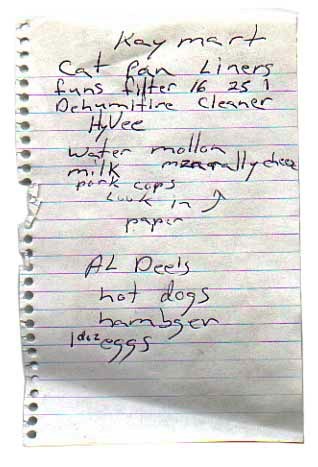 Kay mart
Cat Pan Liners
funs filter 16 25 1
Dehumitire Cleaner
HyVee
Water mollon
milk mzzrally cheez
pork cops
Look in
paper
AL Deels
hot dogs
hambger
1 doz eggs